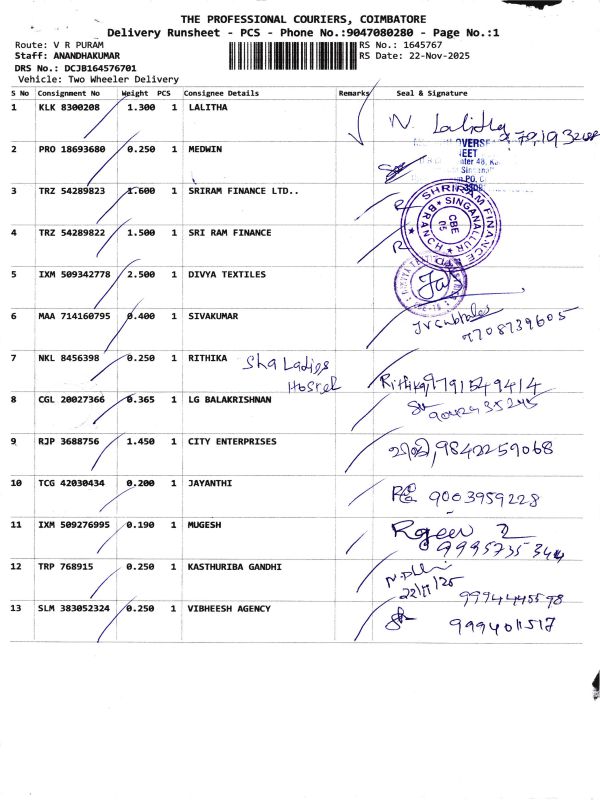 THE PROFESSIONAL COURIERS, COIMBATORE
Delivery Runsheet - PCS - Phone No.:9047080280 - Page No.:1
Route: V R PURAM
RS No.: 1645767
Staff: ANANDHAKUMAR
RS Date: 22-Nov-2025
DRS No.: DCJB164576701
Vehicle: Two Wheeler Delivery
S No Consignment No Weight PCS Consignee Details Remarks Seal & Signature
1 KLK 8300208 1.300 1 LALITHA N. Lalitha
2 PRO 18693680 0.250 1 MEDWIN
3 TRZ 54289823 1.600 1 SRIRAM FINANCE LTD..
SHRIRAM FINANCE
SINGANALLUR
BRANCH
CBE
05
4 TRZ 54289822 1.500 1 SRI RAM FINANCE
5 IXM 509342778 2.500 1 DIVYA TEXTILES
6 MAA 714160795 0.400 1 SIVAKUMAR
7708739605
7 NKL 8456398 0.250 1 RITHIKA Sha Ladies
Hostel
Rithika, 9791549414
8 CGL 20027366 0.365 1 LG BALAKRISHNAN
9 RJP 3688756 1.450 1 CITY ENTERPRISES 9842259068
10 TCG 42030434 0.200 1 JAYANTHI 9003959228
11 IXM 509276995 0.190 1 MUGESH
12 TRP 768915 0.250 1 KASTHURIBA GANDHI
22/11/25
9994445598
13 SLM 383052324 0.250 1 VIBHEESH AGENCY 9994011517